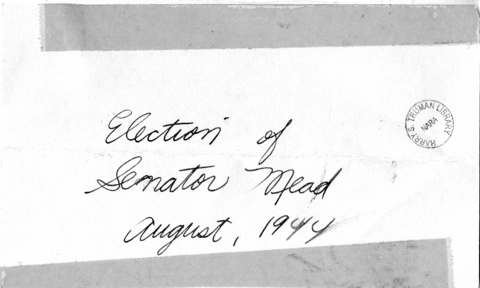 Election of
Senator Mead
August, 1944
HARRY S. TRUMAN LIBRARY
NARA